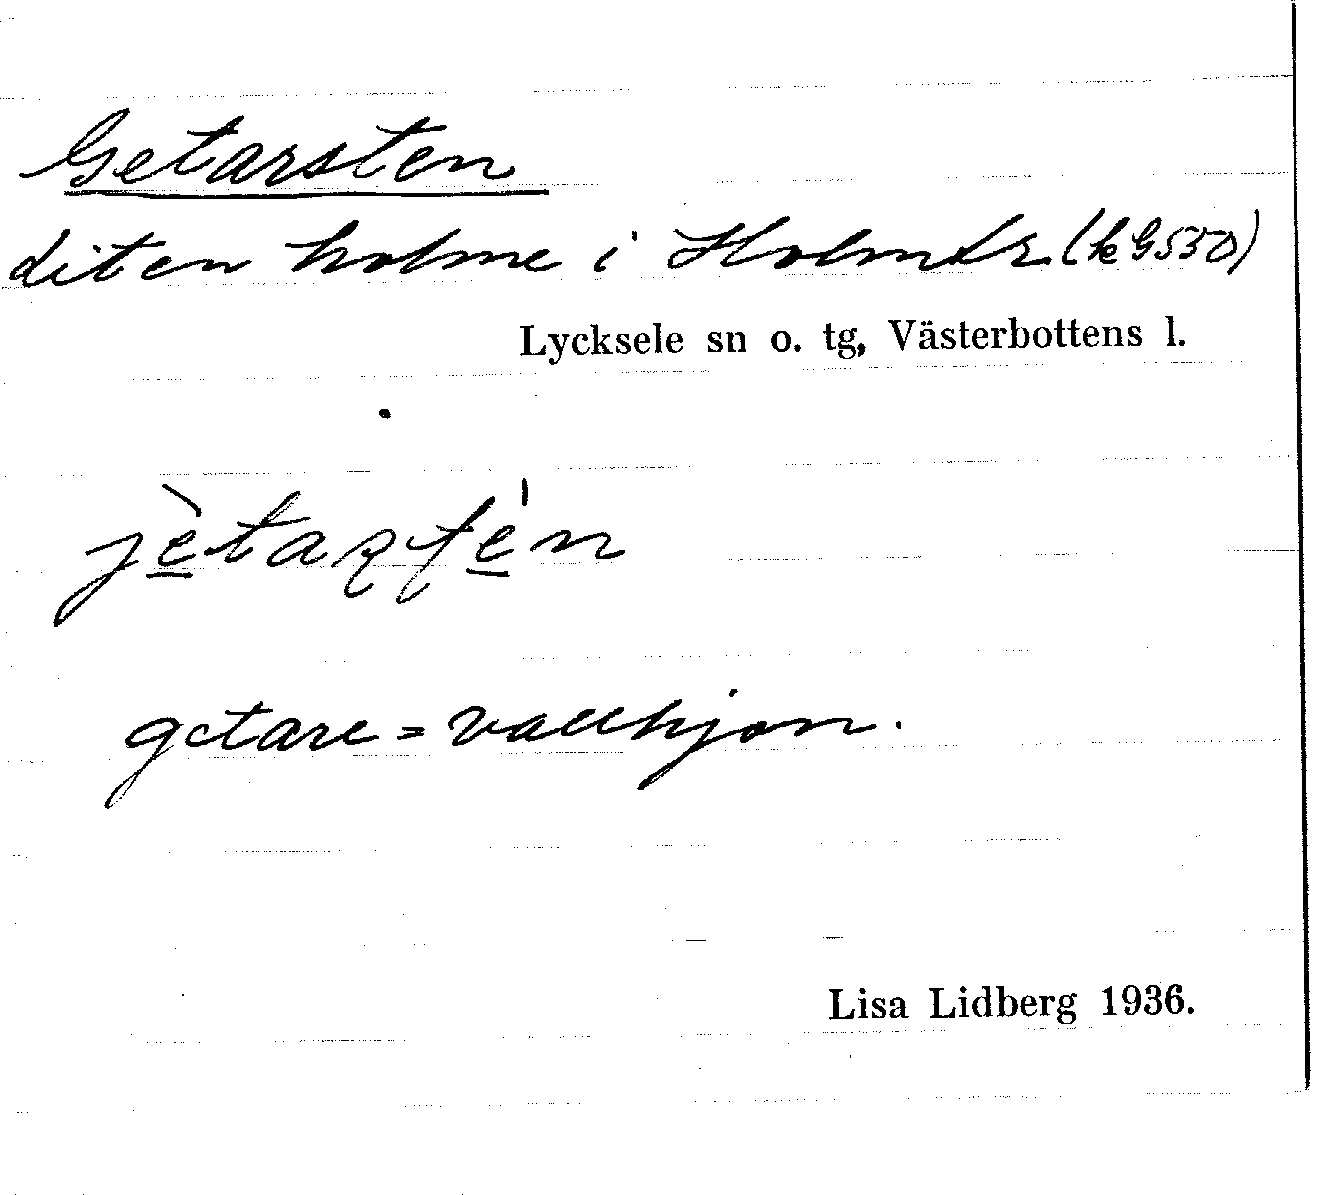 Getarsten
liten holme i Holmtr. (kG550)
Lycksele sn o. tg, Västerbottens l.
getare = vallhjon.
Lisa Lidberg 1936.